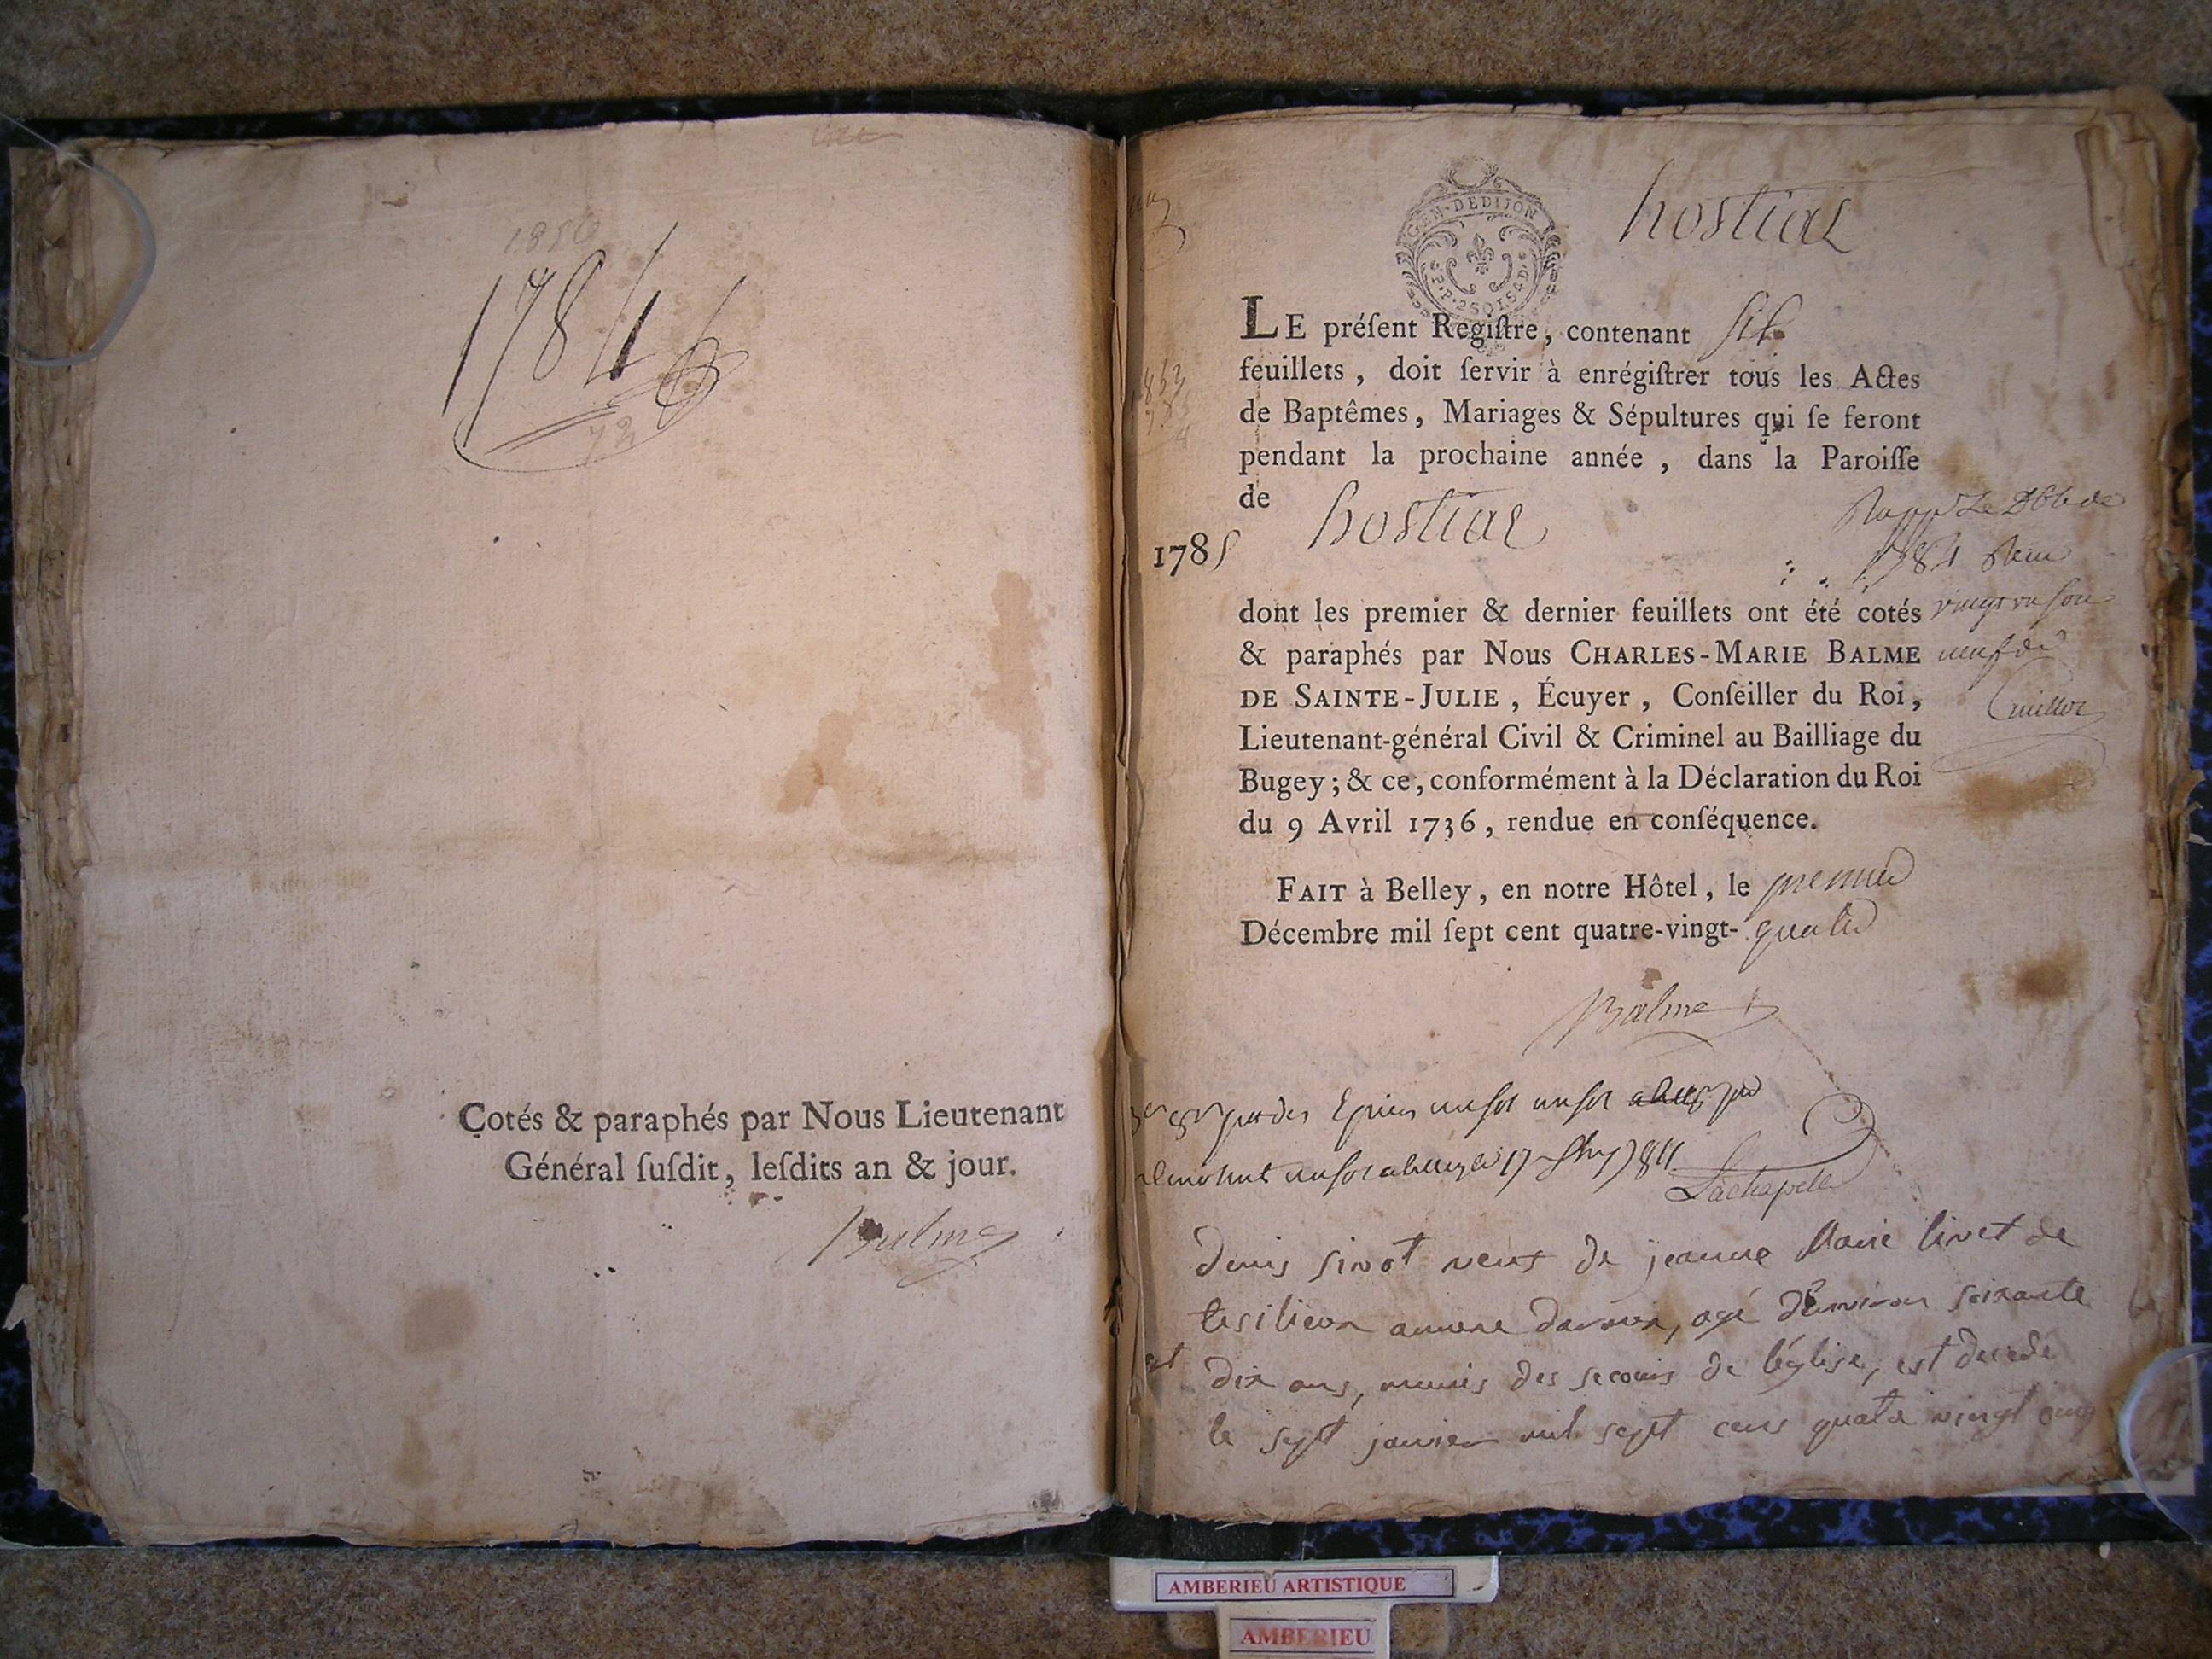 1850
1784
72
Cotés & paraphés par Nous Lieutenant
Général ſuſdit, leſdits an & jour.
Balme
GEN·DEDIJON
hostiaz
LE préſent Regiſtre, contenant six
feuillets, doit ſervir à enrégiſtrer tous les Actes
de Baptêmes, Mariages & Sépultures qui ſe feront
pendant la prochaine année, dans la Paroiſſe
de hostiaz
1785
dont les premier & dernier feuillets ont été cotés
& paraphés par Nous CHARLES-MARIE BALME
DE SAINTE-JULIE, Écuyer, Conſeiller du Roi,
Lieutenant-général Civil & Criminel au Bailliage du
Bugey; & ce, conformément à la Déclaration du Roi
du 9 Avril 1736, rendue en conſéquence.
FAIT à Belley, en notre Hôtel, le premier
Décembre mil ſept cent quatre-vingt-quatre
Balme
1784
neuf
Lachapelle
Denis sivot veuf de jeanne Marie livet de
agé d'environ soixante
et dix ans, munis des secours de l'église, est decede
le sept janvier mil sept cens quatre vingt cinq
AMBERIEU ARTISTIQUE
AMBERIEU